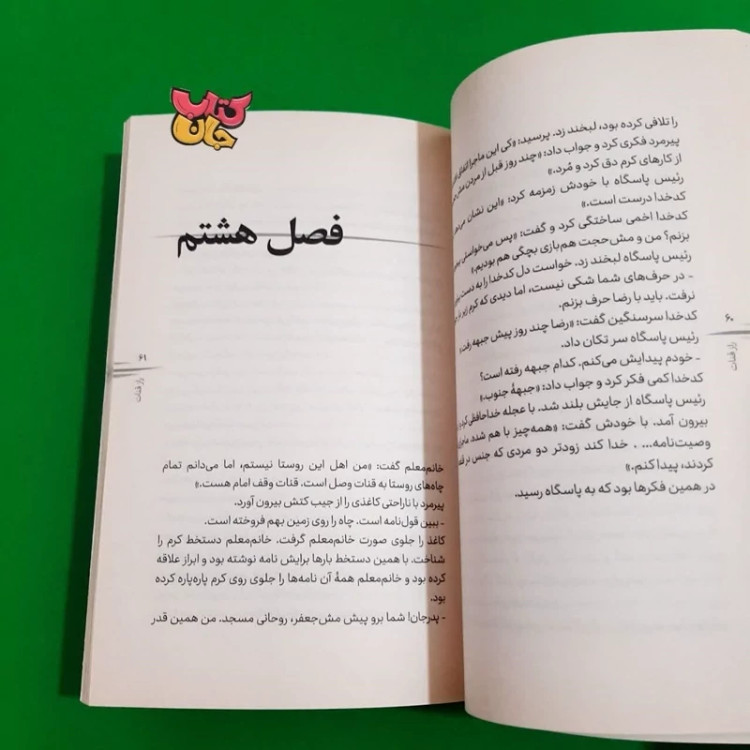 را تلافی کرده بود، لبخند زد. پرسید: «کی این ماجرا اتفاق
پیرمرد فکری کرد و جواب داد: «چند روز قبل از مردن مش
از کارهای کرم دق کرد و مُرد.»
رئیس پاسگاه با خودش زمزمه کرد: «این نشان می‌دهد
کدخدا درست است.»
کدخدا اخمی ساختگی کرد و گفت: «پس می‌خواستی
بزنم؟ من و مش‌حجت هم‌بازی بچگی هم بودیم.»
رئیس پاسگاه لبخند زد. خواست دل کدخدا را به دست
- در حرف‌های شما شکی نیست، اما دیدی که کرم زیر بار
نرفت. باید با رضا حرف بزنم.
کدخدا سرسنگین گفت: «رضا چند روز پیش جبهه رفت.»
رئیس پاسگاه سر تکان داد.
- خودم پیدایش می‌کنم. کدام جبهه رفته است؟
کدخدا کمی فکر کرد و جواب داد: «جبههٔ جنوب.»
رئیس پاسگاه از جایش بلند شد. با عجله خداحافظی کرد و
بیرون آمد. با خودش گفت: «همه‌چیز با هم شد.
وصیت‌نامه... . خدا کند زودتر دو مردی که جنس در
کردند، پیدا کنم.»
در همین فکرها بود که به پاسگاه رسید.
۶۰
راز قنات
کتاب
جان
فصل هشتم
۶۱
راز قنات
خانم‌معلم گفت: «من اهل این روستا نیستم، اما می‌دانم تمام
چاه‌های روستا به قنات وصل است. قنات وقف امام هست.»
پیرمرد با ناراحتی کاغذی را از جیب کتش بیرون آورد.
- ببین قول‌نامه است. چاه را روی زمین بهم فروخته است.
کاغذ را جلوی صورت خانم‌معلم گرفت. خانم‌معلم دستخط کرم را
شناخت. با همین دستخط بارها برایش نامه نوشته بود و ابراز علاقه
کرده بود و خانم‌معلم همهٔ آن نامه‌ها را جلوی روی کرم پاره‌پاره کرده
بود.
- پدرجان! شما برو پیش مش‌جعفر، روحانی مسجد. من همین قدر